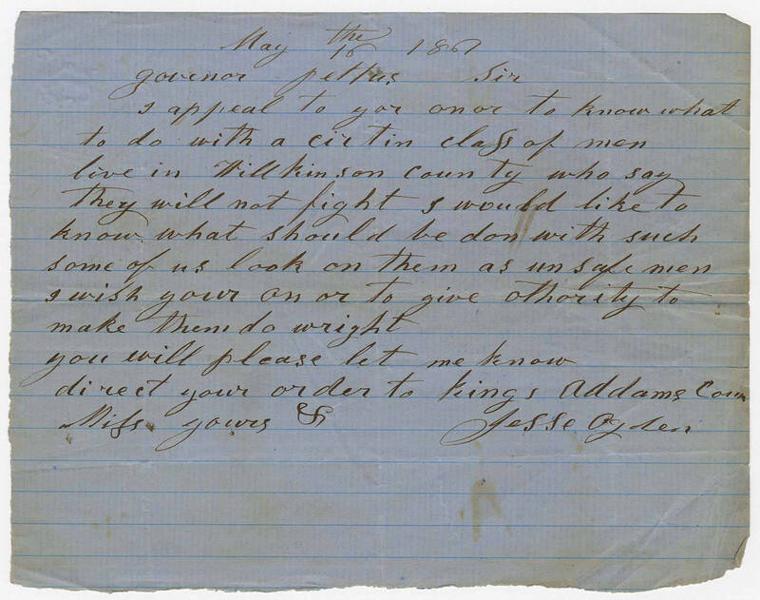 May the 16 186
govenor pettus Sir
I appeal to yor onor to know what
to do with a cirtin class of men
live in Willkinson county who say
they will not fight I would like to
know what should be don with such
some of us look on them as unsafe men
I wish your onor to give othority to
make them do wright
you will please let me know
direct your order to kings Addams Coun
Miss yours &c Jesse Ogden